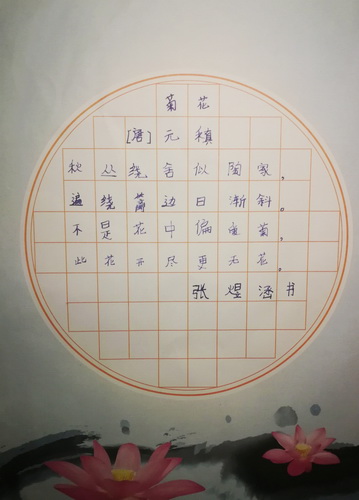 菊花
[唐]元稹
秋丛绕舍似陶家,
遍绕篱边日渐斜。
不是花中偏爱菊,
此花开尽更无花。
张煋涵书